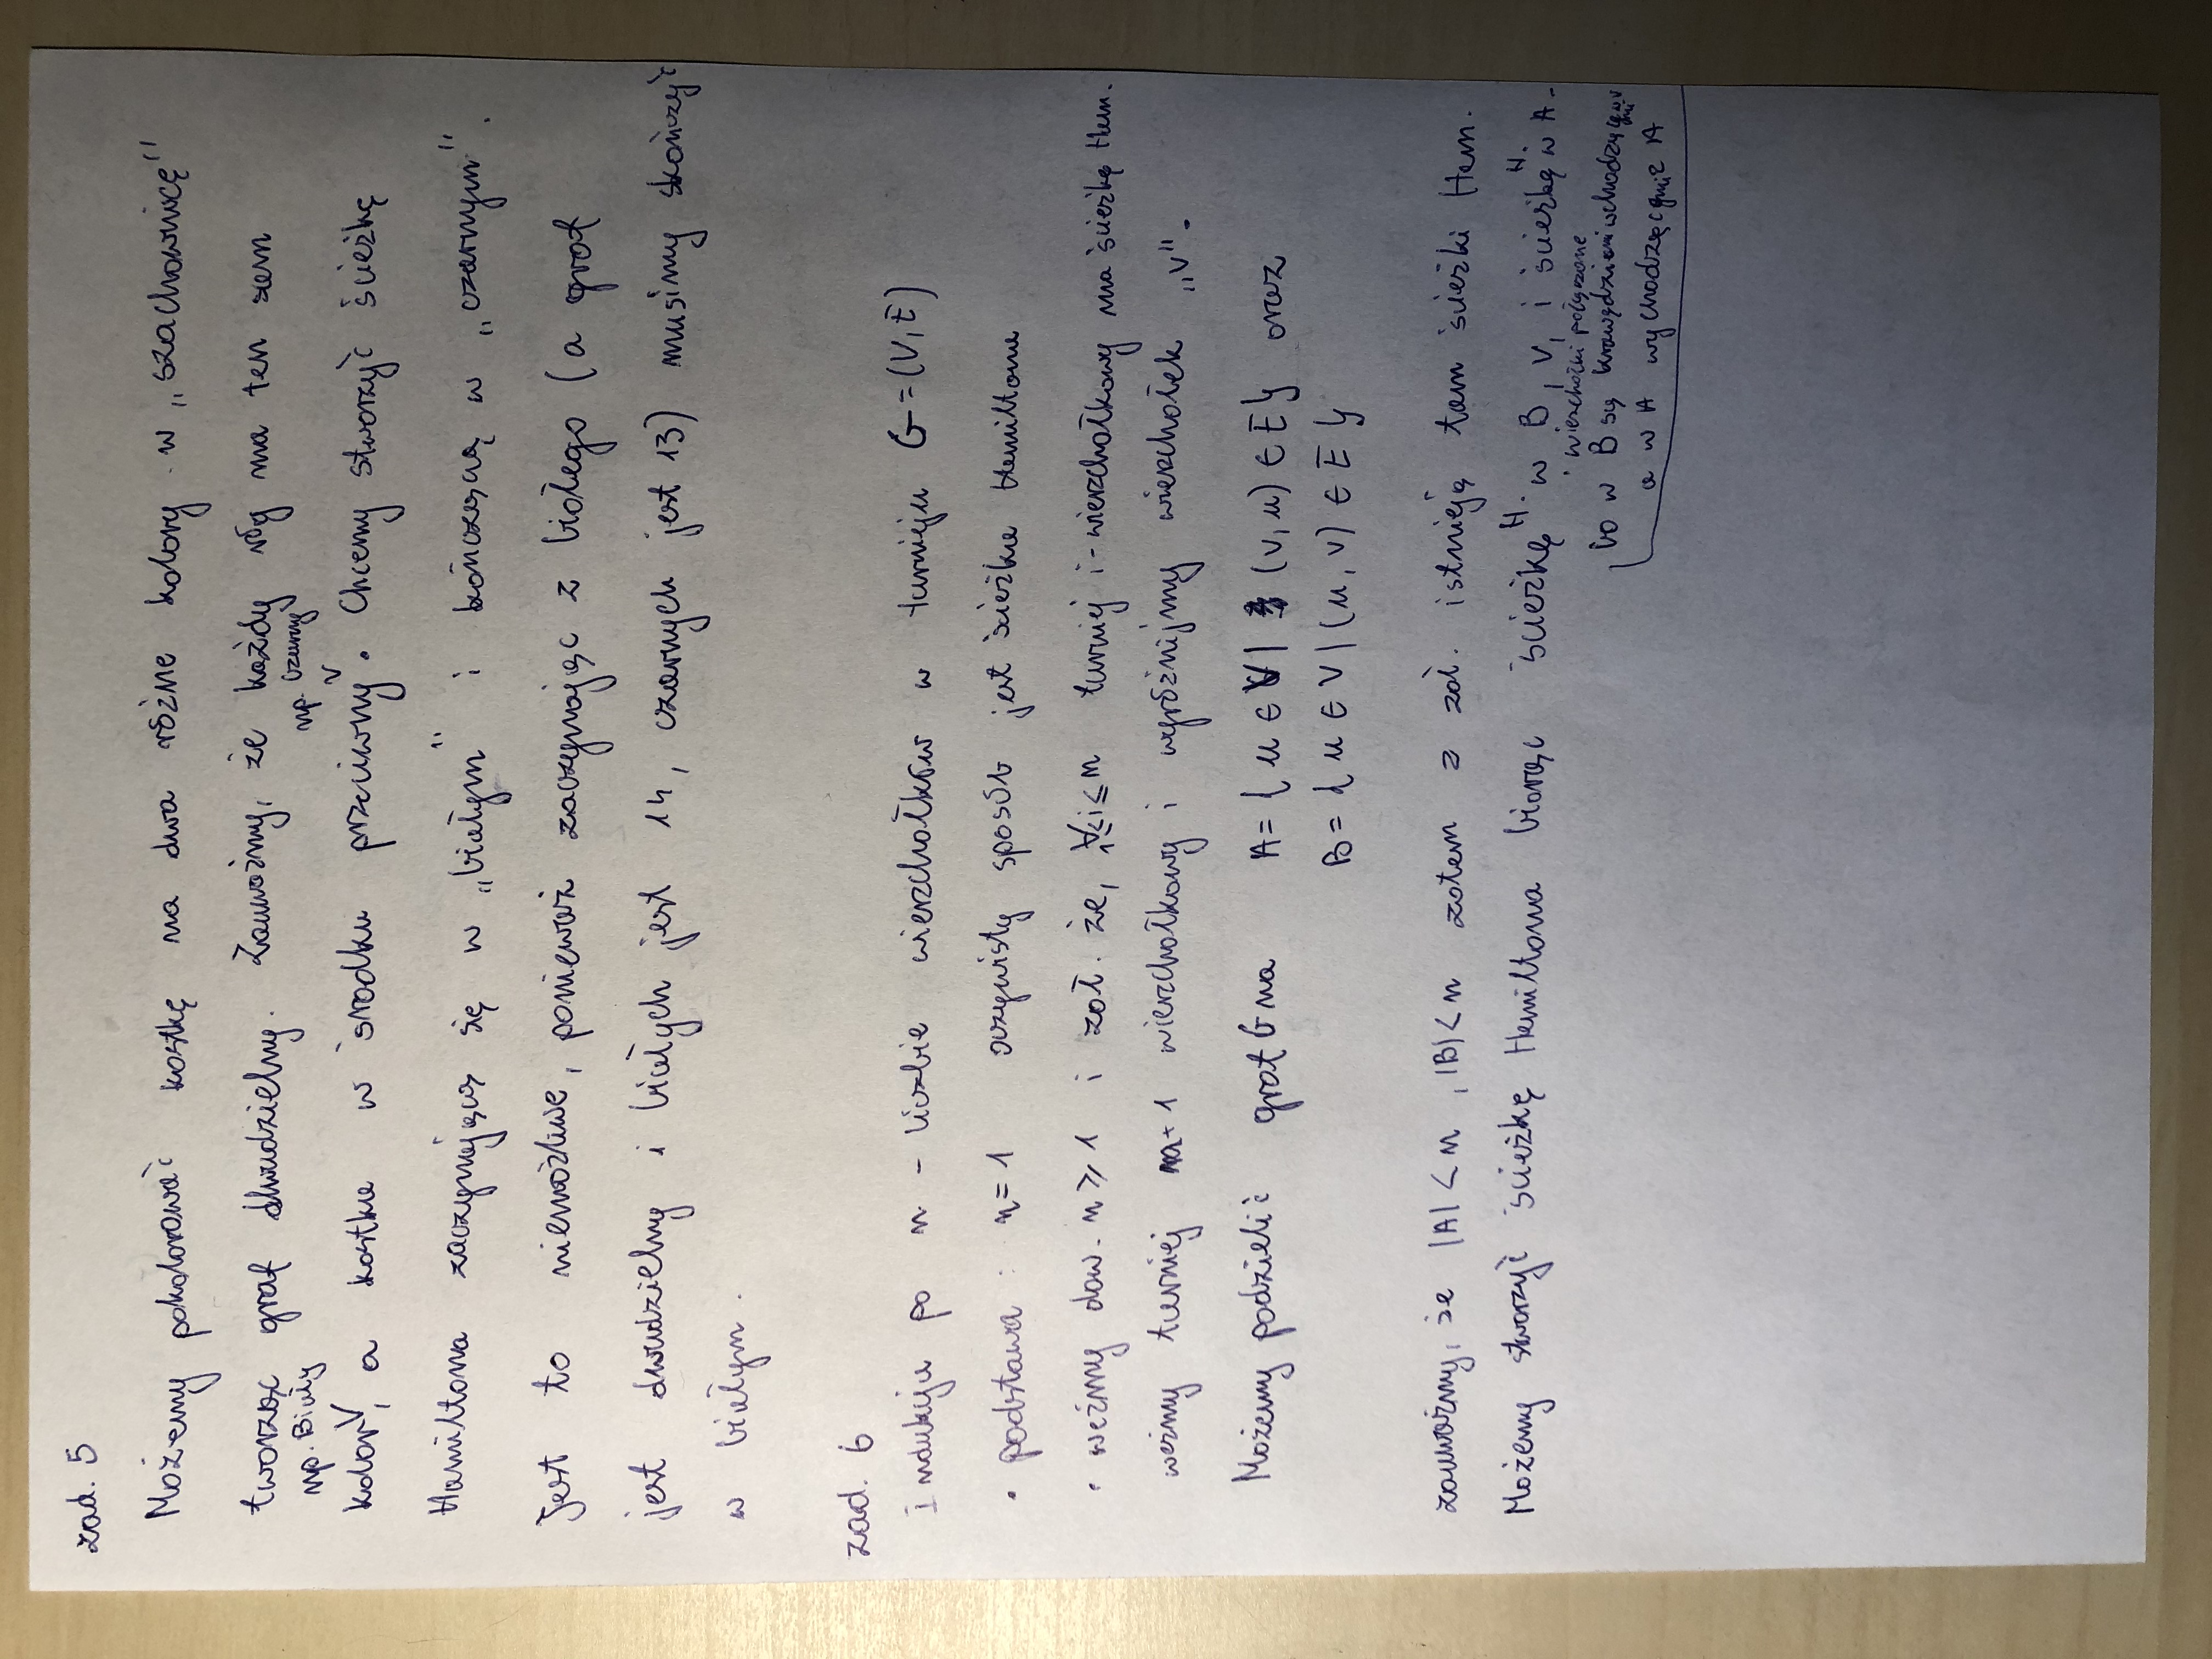 zad. 5
Możemy pokolorować kostkę na dwa różne kolory w „szachownicę"
tworząc graf dwudzielny. Zauważmy, że każdy róg ma ten sam
np. Biały np. Czarny
kolor, a kostka w środku przeciwny. Chcemy stworzyć ścieżkę
Hamiltona zaczynającą się w „białym" i kończącą w „czarnym".
Jest to niemożliwe, ponieważ zaczynając z białego (a graf
jest dwudzielny i białych jest 14, czarnych jest 13) musimy skończyć
w białym.
zad. 6
Indukcja po n - liczbie wierzchołków w turnieju G=(V,E)
• podstawa : n=1 oczywisty sposób jest ścieżka Hamiltona
• weźmy dow. n ≥ 1 i zał. że, ∀ 1≤i≤n turniej i-wierzchołkowy ma ścieżkę Ham.
weźmy turniej n+1 wierzchołkowy i wyróżnijmy wierzchołek „v".
Możemy podzielić graf G na A= { u ∈ V | (v,u) ∈ E } oraz
B= { u ∈ V | (u,v) ∈ E }
zauważmy, że |A| < n , |B| < n zatem z zał. istnieją tam ścieżki Ham.
Możemy stworzyć ścieżkę Hamiltona biorąc ścieżkę H. w B, v, i ścieżkę H. w A -
wierzchołki połączone
bo w B są krawędziami wchodzącymi w v
a w A wychodzącymi z A